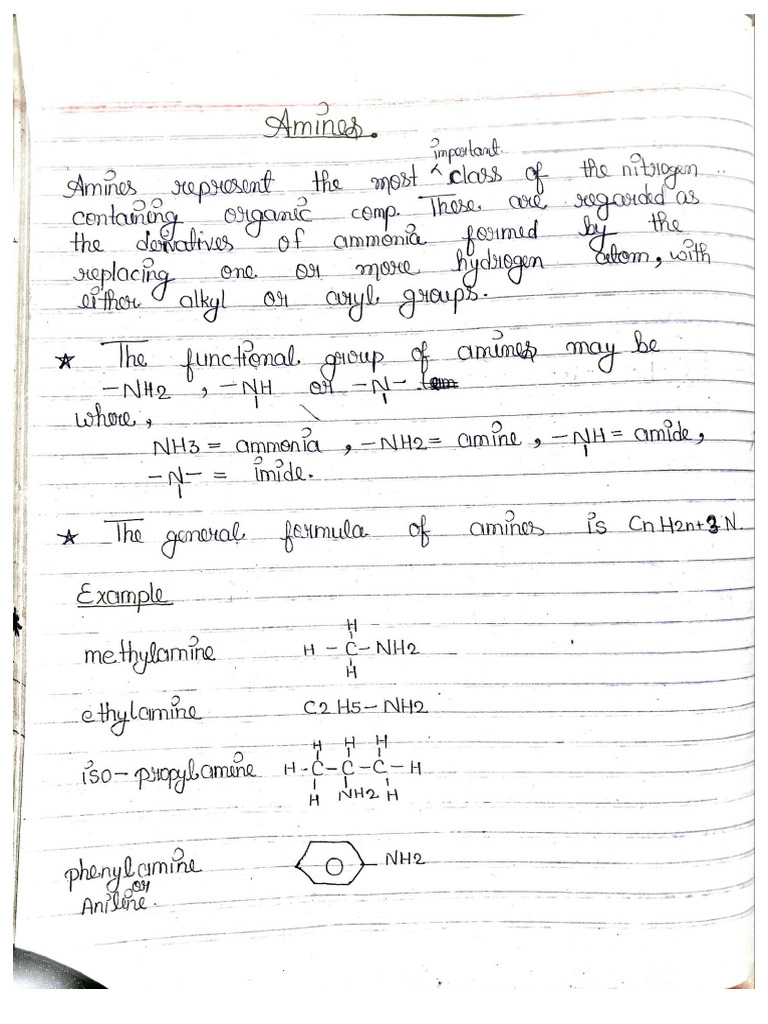 Amines.
Amines represent the most important class of the nitrogen
containing organic comp. These are regarded as
the derivatives of ammonia formed by the
replacing one or more hydrogen atom, with
either alkyl or aryl groups.
★ The functional group of amines may be
-NH2 , -NH or -N-
where,
NH3 = ammonia , -NH2 = amine , -NH = amide ,
-N- = imide.
★ The general formula of amines is CnH2n+3N.
Example
methylamine H - C - NH2
H
H
ethylamine C2H5-NH2
iso-propylamine H - C - C - C - H
H H H
H NH2 H
phenylamine NH2
or
Aniline.